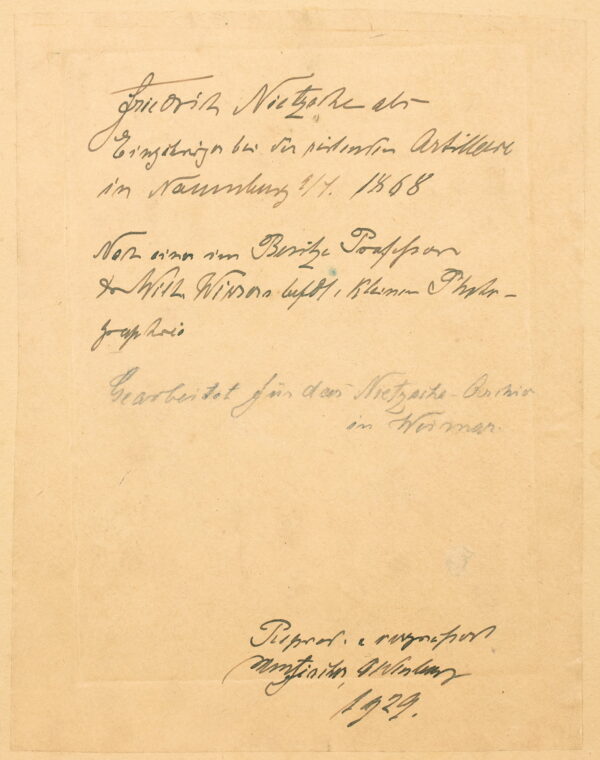 Friedrich Nietzsche als
Einjähriger bei der reitenden Artillerie
in Naumburg a/S. 1868
Nach einer im Besitze Professor
Dr Wilh Wissers befdl. kleinen Photo-
graphie
Gearbeitet für das Nietzsche-Archiv
in Weimar.
Reprod. u
Altenburg
1929.